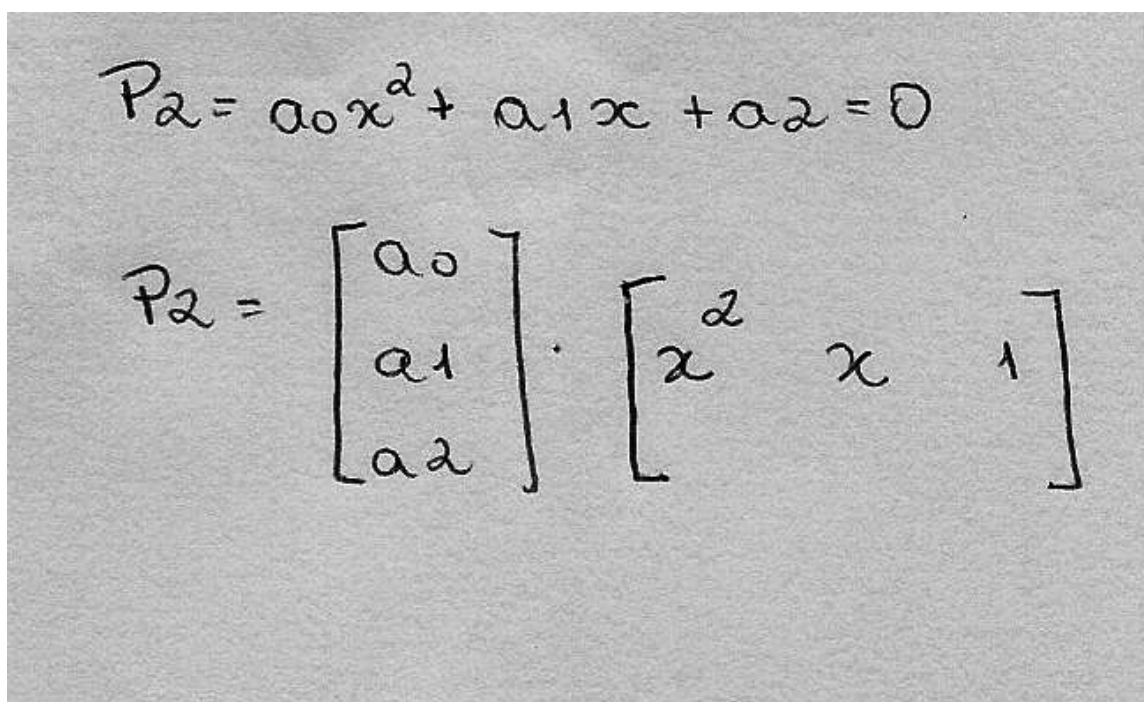 P2 = a0x² + a1x + a2 = 0
P2 = [a0 a1 a2] · [x² x 1]